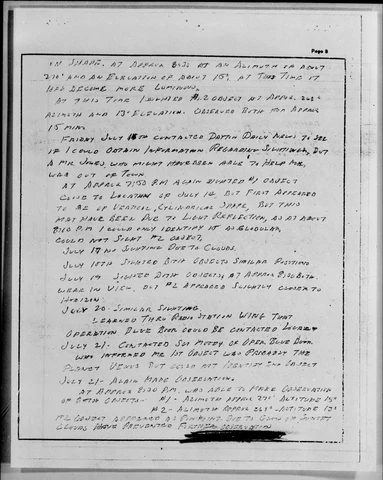 Page 2
IN SHAPE. AT APPROX 8:30 AT AN AZIMUTH OF ABOUT
270° AND AN ELEVATION OF ABOUT 15°, AT THIS TIME IT
HAD BECOME MORE LUMINOUS,
AT THIS TIME I SIGHTED #2 OBJECT AT APPROX. 265°
AZIMUTH AND 13° ELEVATION. OBSERVED BOTH FOR APPROX
15 MIN.
FRIDAY JULY 15TH CONTACTED DAYTON DAILY NEWS TO SEE
IF I COULD OBTAIN INFORMATION REGARDING SIGHTINGS, BUT
A MR. JONES, WHO MIGHT HAVE BEEN ABLE TO HELP ME,
WAS OUT OF TOWN
AT APPROX 7:50 P.M. AGAIN SIGHTED #1 OBJECT
CLOSE TO LOCATION OF JULY 14. BUT FIRST APPEARED
TO BE OF VERTICAL, CYLINDRICAL SHAPE, BUT THIS
MAY HAVE BEEN DUE TO LIGHT REFLECTION, AS AT ABOUT
8:10 P.M. I COULD ONLY IDENTIFY IT AS GLOBULAR,
COULD NOT SIGHT #2 OBJECT,
JULY 17 NO SIGHTING DUE TO CLOUDS.
JULY 18TH SIGHTED BOTH OBJECTS SIMILAR POSITIONS
JULY 19 SIGHTED BOTH OBJECTS, AT APPROX 8:30 BOTH
WEAR IN VIEW, BUT #2 APPEARED SLIGHTLY CLOSER TO
HORIZON.
JULY 20 - SIMILAR SIGHTING.
LEARNED THRU RADIO STATION WING THAT
OPERATION BLUE BOOK COULD BE CONTACTED LOCALLY
JULY 21 - CONTACTED SGT MOODY OF OPER. BLUE BOOK
WHO INFORMED ME 1ST OBJECT WAS PROBABLY THE
PLANET VENUS BUT COULD NOT IDENTIFY 2ND OBJECT
JULY 21 - AGAIN MADE OBSERVATION.
AT APPROX 8:30 P.M. WAS ABLE TO MAKE OBSERVATION
OF BOTH OBJECTS - #1 - AZIMUTH APPROX 270° ALTITUDE 15°
#2 - AZIMUTH APPROX 265° ALTITUDE 13°
#2 OBJECT APPEARED AS PINPOINT DUE TO SUNSET
CLOUDS HAVE PREVENTED FURTHER OBSERVATION